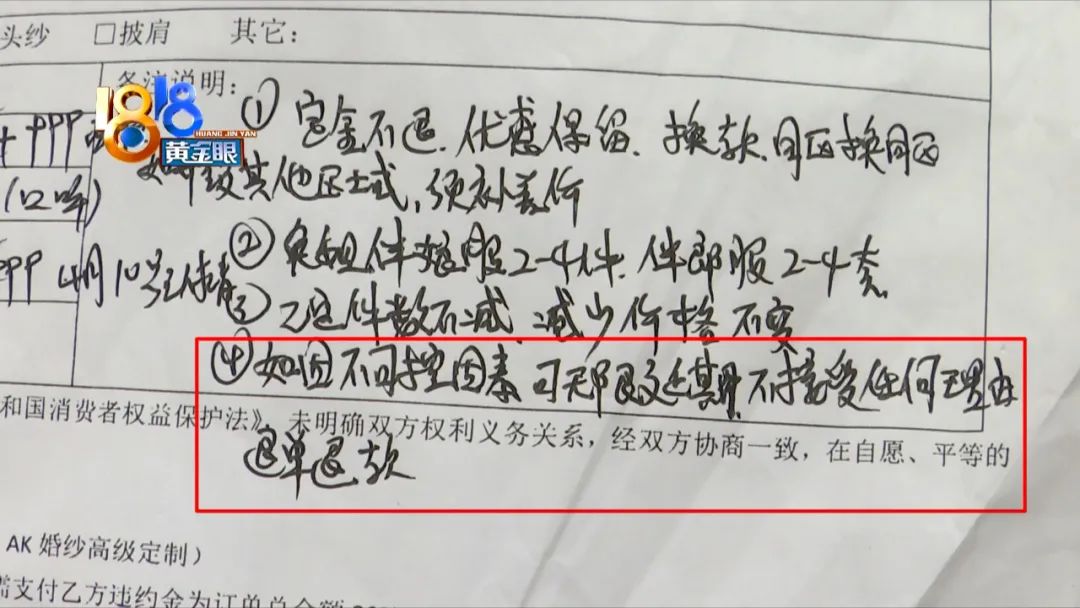 头纱 □披肩 其它：
备注说明：
1818
HUANG JIN YAN
黄金眼
① 定金不退、优惠保留、换款、同区换同区
其他区士式，须补差价
(口哗)
② 伴娘服2-4件、伴郎服2-4套
4月10号
③ 件数不减、减少价格不变
④ 如因不可控因素可无限改延期、不接受任何理由
和国消费者权益保护法》，未明确双方权利义务关系，经双方协商一致，在自愿、平等的
退单退款
AK 婚纱高级定制）
需支付乙方违约金为订单总金额